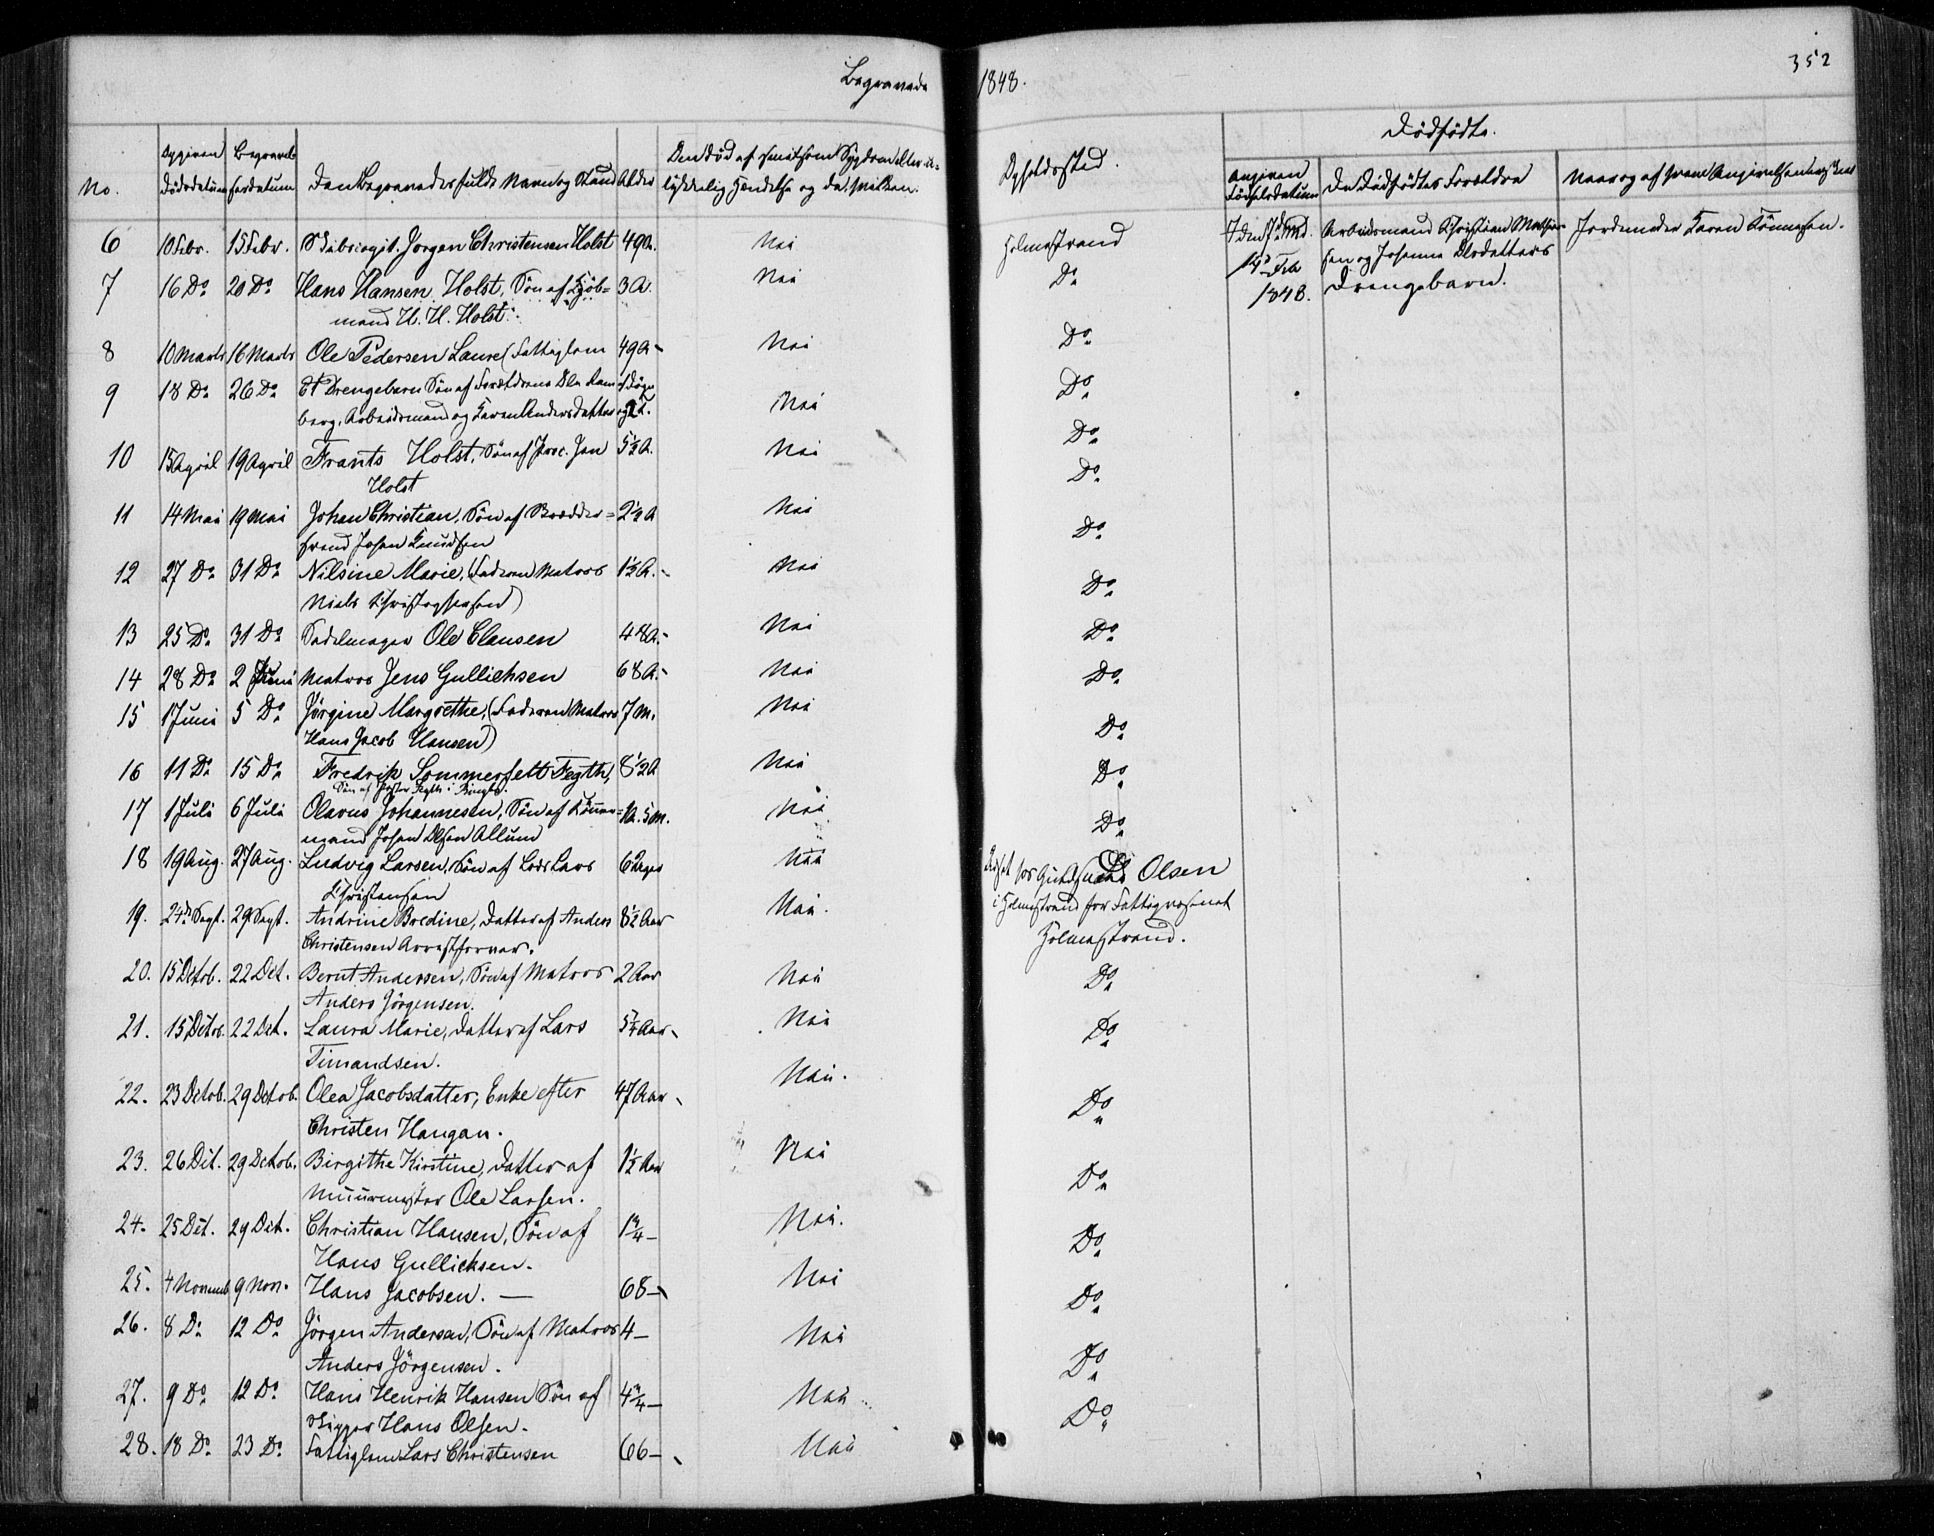 Begravede 1848.
352
No.
Opgiven Dödsdatum
Begravelsesdatum
Den Begravedes fulde Navn og Stand
Alder
Den död af smitsom Sygdom eller ulykkelig Hendelse og da hvilken.
Opholdssted.
Dödfödte.
Angiven Födselsdatum
De Dödfödtes Forældre
Naar og af hvem Angivelsen er skeet
6 10 Febr. 15 Febr. Jørgen Christensen Holst 49 A. Nei Holmestrand
7 16 Do 20 Do Hans Hansen Holst, Søn af Kjøb=
mand H. H. Holst. 3 A. Nei Do
8 10 Marts 16 Marts Ole Pedersen Laure (Fattiglem 49 A. Nei Do
9 18 Do 26 Do Et Drengebarn Søn af Forældrene Ole Ram
berg, Arbeidsmand og Karen Andersdatter Nei Do
10 15 April 19 April Frants Holst, Søn af Proc. Jan
Holst 5½ A. Nei Do
11 14 Mai 19 Mai Johan Christian, Søn af
Johan Knudsen 2½ A Nei Do
12 27 Do 31 Do Nilsine Marie, (Faderen Matros
Niels Christophersen) 1½ A. Nei Do
13 25 Do 31 Do Sadelmager Ole Clausen 48 A. Nei Do
14 28 Do 2 Juni Matros Jens Gullichsen 68 A. Nei Do
15 1 Juni 5 Do Jørgine Margrethe, (Faderen Matros
Hans Jacob Hansen) 7 M. Nei Do
16 11 Do 15 Do Fredrik Sommerfelt Fegth,
Søn af 8½ A Nei Do
17 1 Juli 6 Juli Olavus Johannesen, Søn af Tömmer=
mand Johan Olsen Allum 1 A. 5 M. Nei Do
18 19 Aug. 27 Aug. Ludvig Larsen, Søn af Lods Lars
Christensen 6 Dage Nei Do
19. 24de Sept. 29 Sept. Andrine Bredine, Datter af Anders
Christensen Arrestforvar. 8½ Aar Nei. Olsen
i Holmestrand for Fattigvæsenet
Holmestrand.
20. 15 Octob. 22 Oct. Bernt Andersen, Søn af Matros
Anders Jörgensen. 2 Aar Nei Do
21. 15 Octob. 22 Oct. Laura Marie, Datter af Lars
Timandsen. Nei Do
22. 23 Octob. 29 Octob. Olea Jacobsdatter, Enke efter
Christen Haugan. 47 Aar Nei. Do
23. 26 Oct. 29 Octob. Birgithe Kirstine, Datter af
Muurmester Ole Larsen. 1½ Aar Nei Do
24. 25 Oct. 29 Oct. Christian Hansen, Søn af
Hans Gullichsen. Nei. Do
25. 4 Novemb 9 Nov. Hans Jacobsen. — 68 — Nei Do
26. 8 Do 12 Do Jörgen Andersen, Søn af Matros
Anders Jörgensen. 4 — Nei Do
27. 9 Do 12 Do Hans Henrik Hansen Søn af
Skipper Hans Olsen. Nei Do
28. 18 Do 23 Do Fattiglem Lars Christensen 66 — Nei
Feb
1848.
Arbeidsmand Christian Mathie
sen og Johanne Olsdatters
Drengebarn.
Jordmoder Karen Tönnesen.